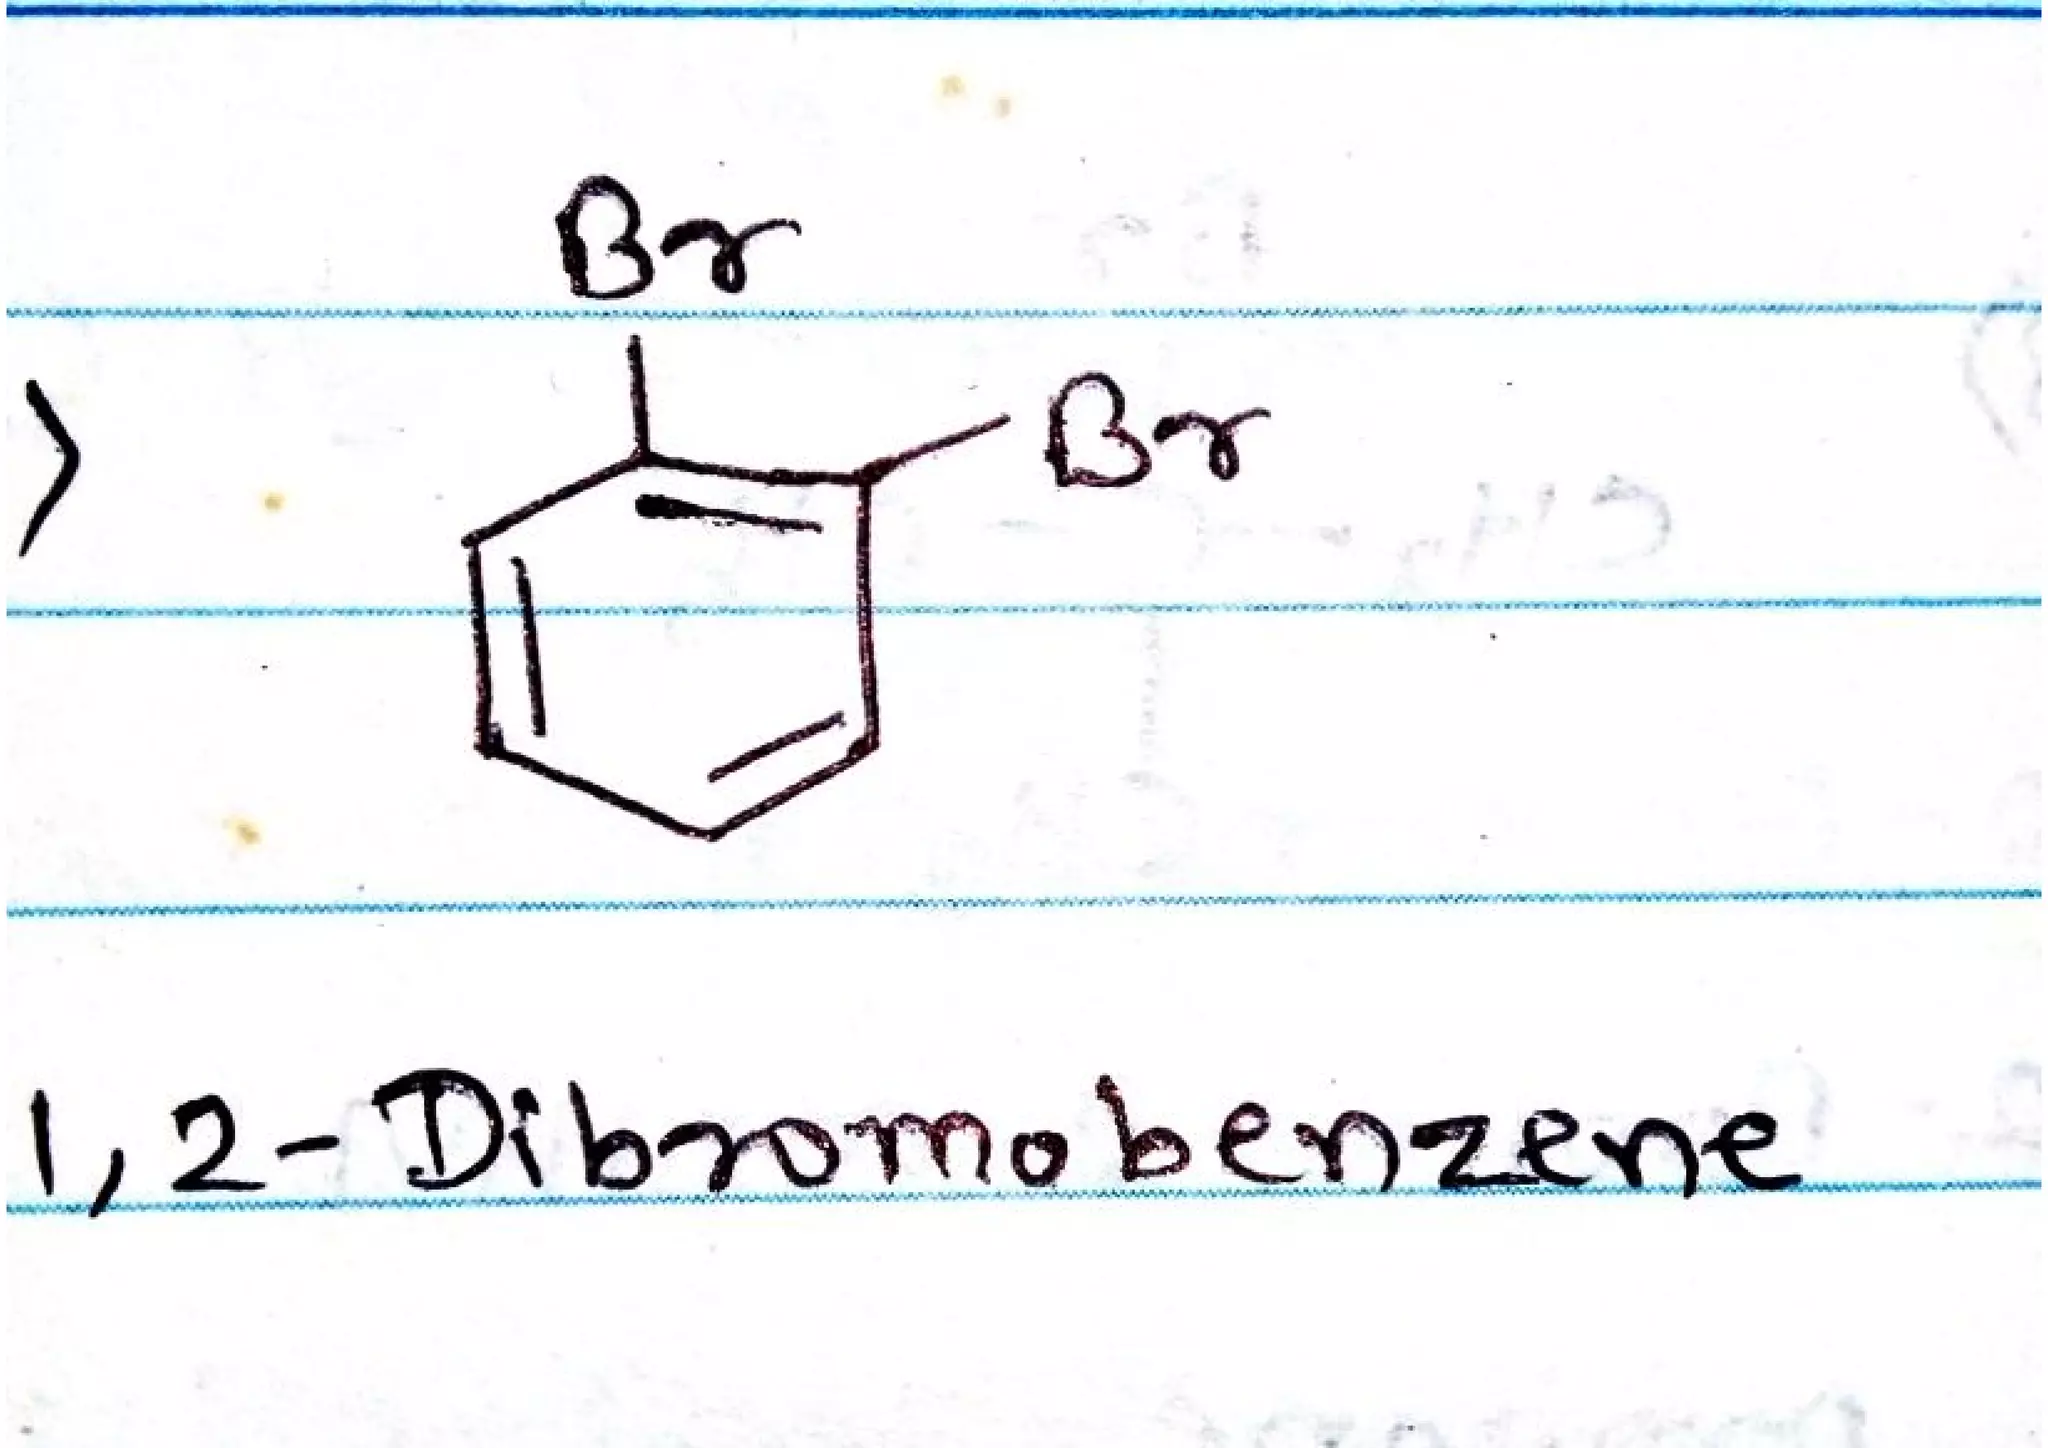 Br
Br
)
1,2-Dibromobenzene